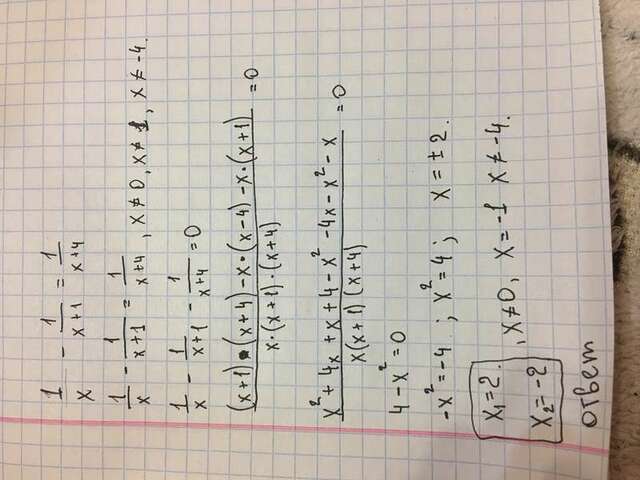 1/x - 1/(x+1) = 1/(x+4)
1/x - 1/(x+1) = 1/(x+4), x ≠ 0, x ≠ 1, x ≠ -4.
1/x - 1/(x+1) - 1/(x+4) = 0
((x+1)·(x+4) - x·(x-4) - x·(x+1))/(x·(x+1)·(x+4)) = 0
(x² + 4x + x + 4 - x² - 4x - x² - x)/(x(x+1)(x+4)) = 0
4 - x² = 0
-x² = -4 ; x² = 4 ; x = ±2.
x₁ = 2.
x₂ = -2 , x ≠ 0, x = -1 x ≠ -4.
ответ